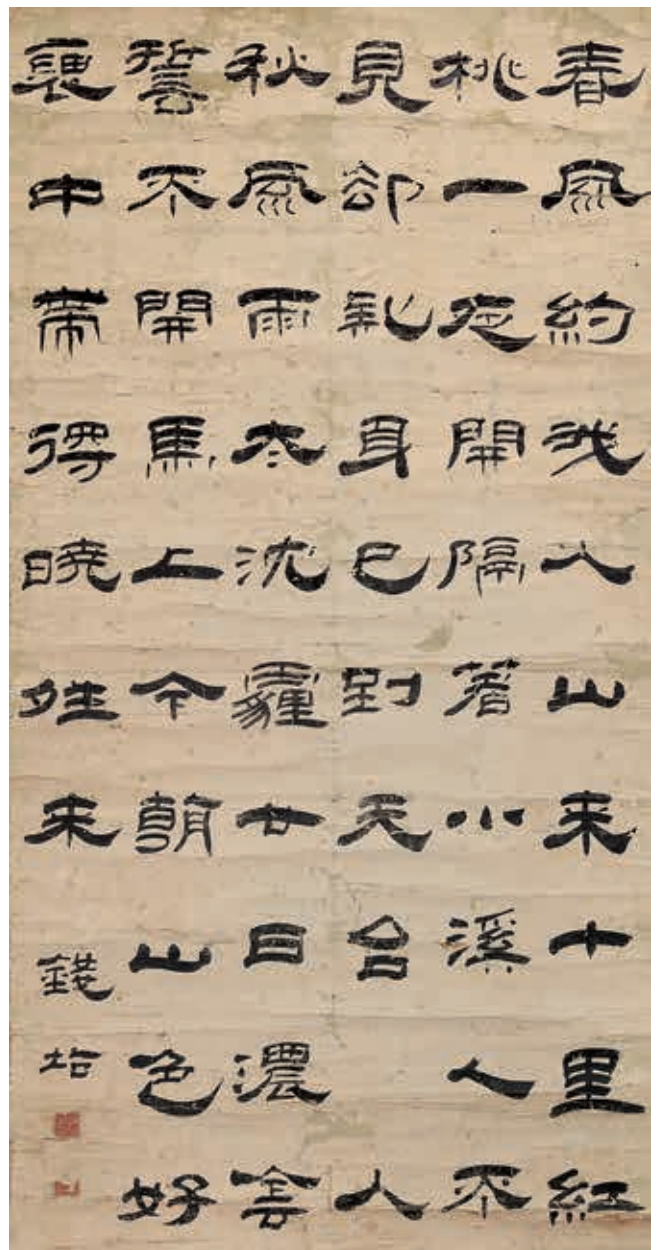 春風約我入山来十里紅
桃一夜開隔着小溪人不
見卻訛身已到天台 入
秋風雨太沈霾廿日濃雲
誓不開馬上今朝山色好
褎中帶得曉夝来
錢坫